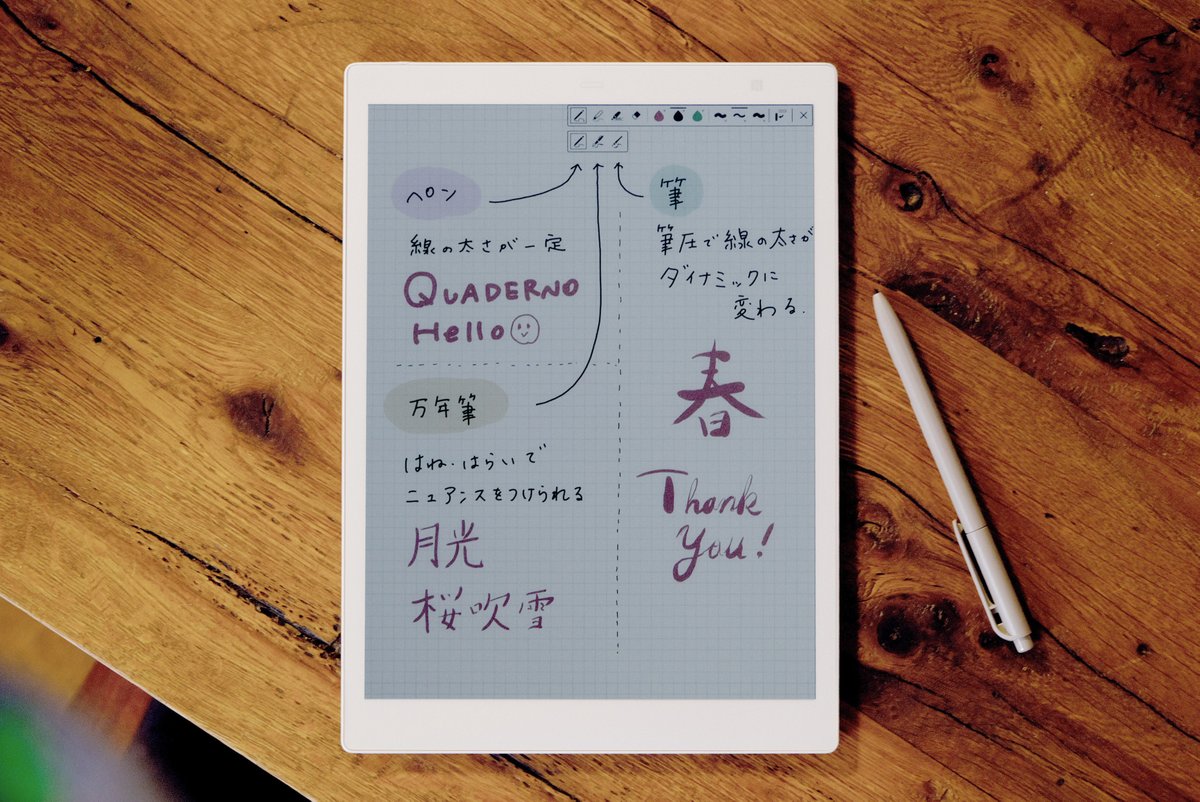 ペン
線の太さが一定
QUADERNO
Hello
万年筆
はね・はらいで
ニュアンスをつけられる
月光
桜吹雪
筆
筆圧で線の太さが
ダイナミックに
変わる.
春
Thank
you!